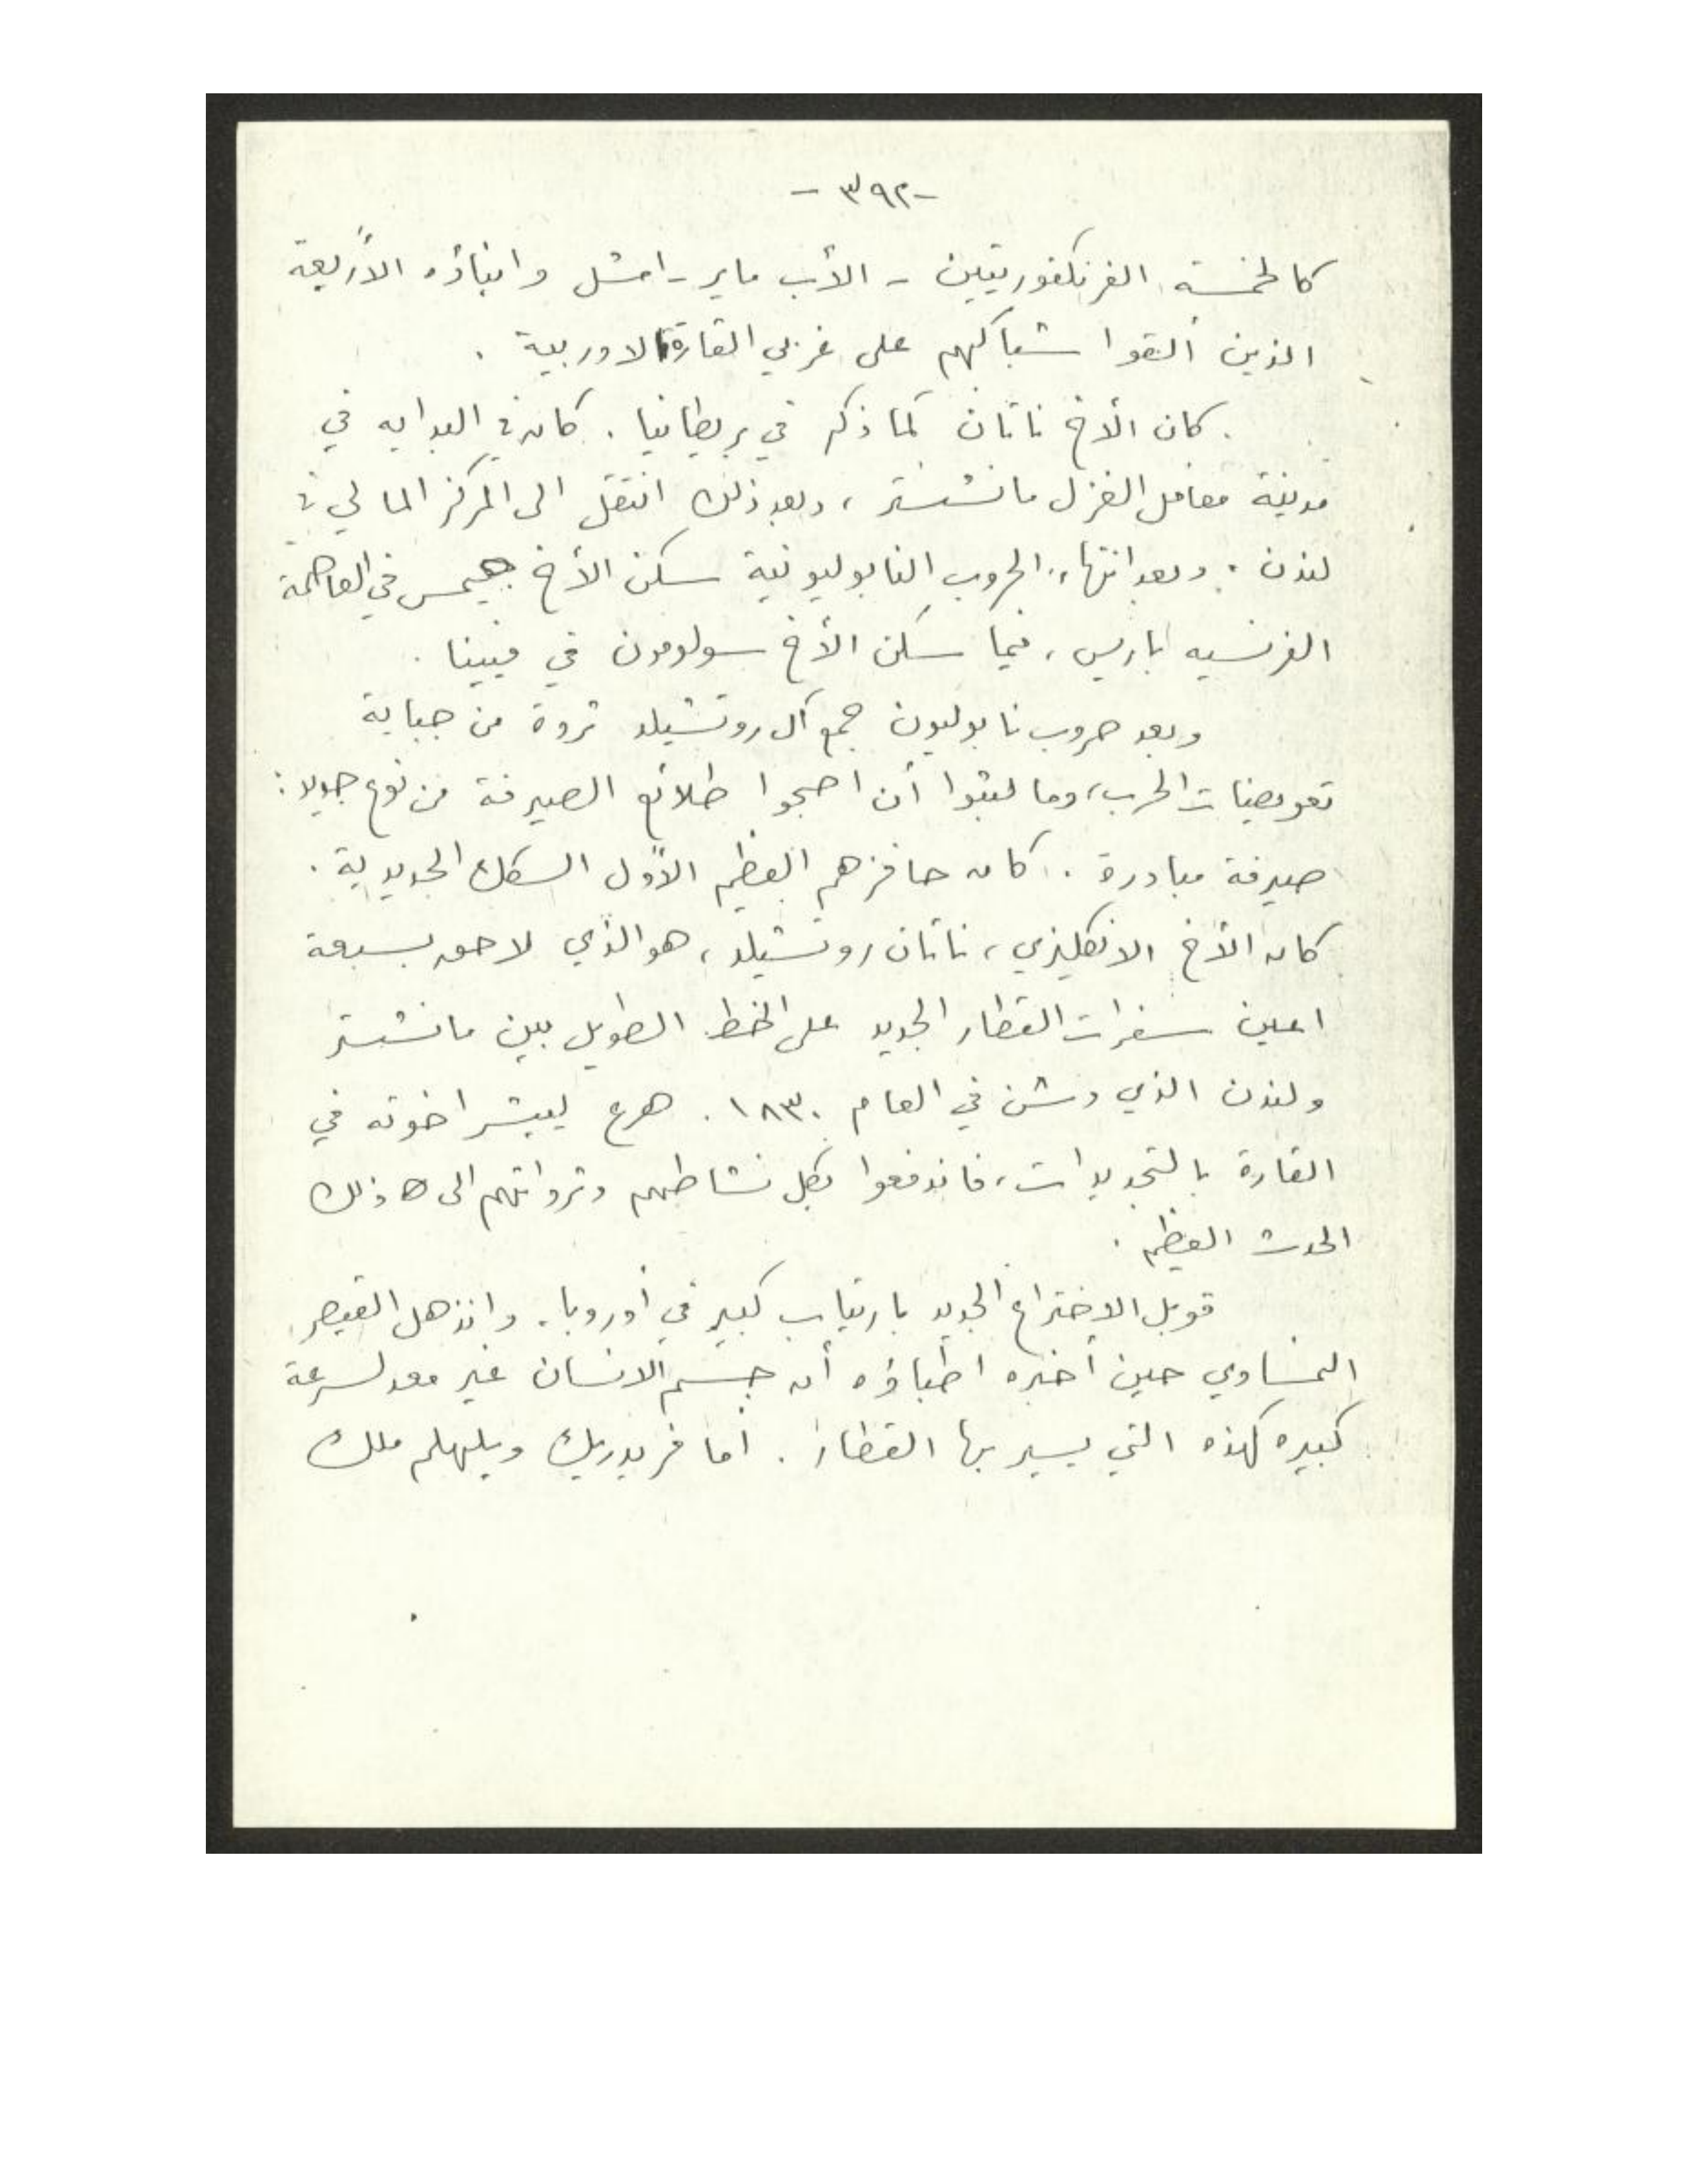 - ٣٩٢ -
كالخمسة الفرنكفورتيين - الأب ماير - امشل وابناؤه الأربعة
الذين ألقوا شباكهم على غربي القارة الاوربية .
كان الأخ ناتان كما ذكر في بريطانيا . كان في البدايه في
مدينة معامل الغزل مانشستر ، وبعد ذلك انتقل الى المركز المالي في
لندن . وبعد انتهاء الحروب النابوليونية سكن الأخ جيمس في العاصمة
الفرنسيه باريس ، فيما سكن الأخ سولومون في فيينا .
وبعد حروب نابوليون جمع آل روتشيلد ثروة من جباية
تعويضات الحرب ، وما لبثوا أن اصبحوا طلائع الصيرفة من نوع جديد :
صيرفة مبادرة . كان حافزهم العظيم الأول السكك الحديدية .
كان الأخ الانكليزي ، ناتان روتشيلد ، هو الذي لاحق بسبعة
اعين سفرات القطار الجديد على الخط الطويل بين مانشستر
ولندن الذي دشن في العام ١٨٣٠ . هرع ليبشر اخوته في
القارة بالتجديدات ، فاندفعوا بكل نشاطهم وثرواتهم الى ذلك
الحدث العظيم .
قوبل الاختراع الجديد بارتياب كبير في أوروبا . وانذهل القيصر
النمساوي حين أخبره اطباؤه أن جسم الانسان غير معد لسرعة
كبيره كهذه التي يسير بها القطار . أما فريدريك ويلهلم ملك